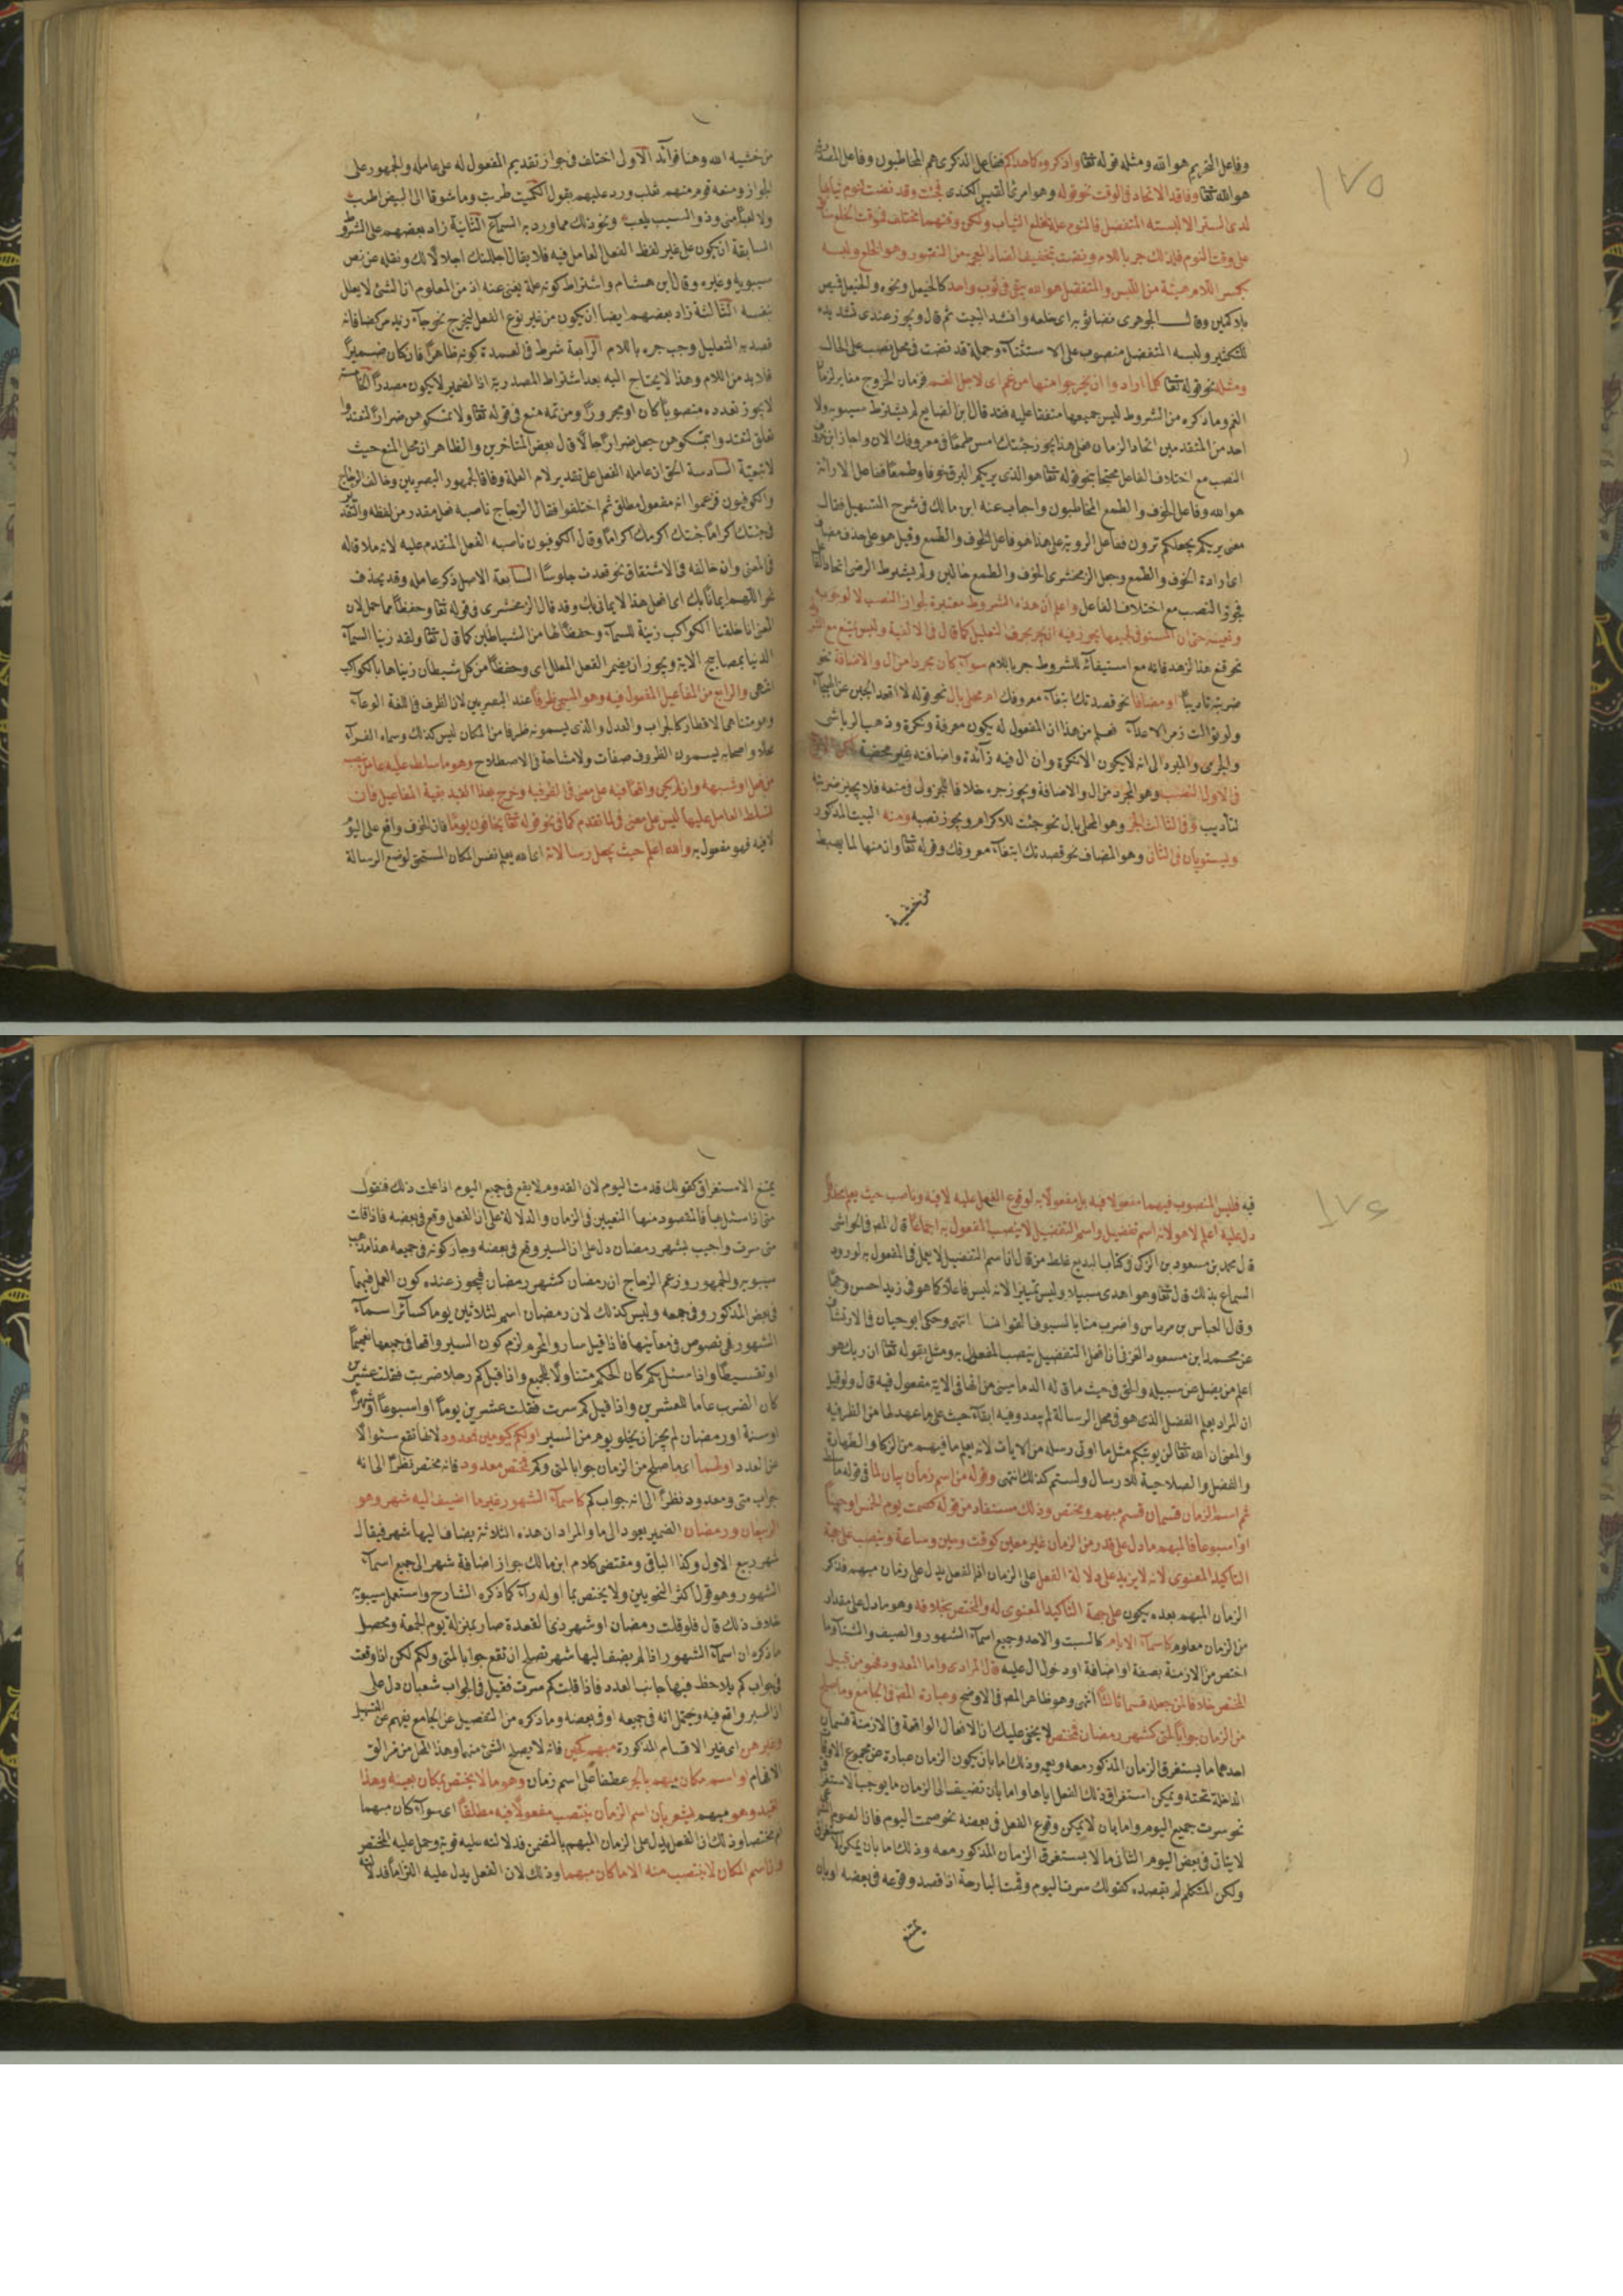 ١٧٥
وفاعل التحريم هو الله ومثله قوله تعالى واذكروه كما هداكم ففاعل الذكرى هم المخاطبون وفاعل
هو الله تعالى وفاقد الاتحاد في الوقت نحو قوله وهو امرئ القيس الكندي فجئت وقد نضت لنوم ثيابها
لدى الستر الا لبسة المتفضل فالنوم علة لخلع الثياب ولكن وقتهما مختلف فوقت الخلع
على وقت النوم فلذلك جر باللام ونضت بتخفيف الضاد المعجمة من النضو وهو الخلع ولبسة
بكسر اللام هيئة من اللبس والمتفضل هو الذي يبقى في ثوب واحد كالخيعل ونحوه والخيعل قميص
بلا كمين وقال الجوهري نضا ثوبه اى خلعه وانشد البيت ثم قال ويجوز عندى تشديده
للتكثير ولبسة المتفضل منصوب على الاستثناء وجملة قد نضت في محل نصب على الحال
ومثله نحو قوله تعالى كلما ارادوا ان يخرجوا منها من غم اى لاجل الغم فزمان الخروج مغاير لزمان
الغم وما ذكره من الشروط ليس جميعها متفقا عليه فقد قال ابن الضايع لم يشترط سيبويه ولا
احد من المتقدمين اتحاد الزمان فعلى هذا يجوز جئتك امس طمعا في معروفك الان واجاز ابن خروف
النصب مع اختلاف الفاعل محتجا بنحو قوله تعالى هو الذي يريكم البرق خوفا وطمعا ففاعل الاراءة
هو الله وفاعل الخوف والطمع المخاطبون واجاب عنه ابن مالك في شرح التسهيل فقال
معنى يريكم يجعلكم ترون ففاعل الروية على هذا هو فاعل الخوف والطمع وقيل هو على حذف مضاف
اى ارادة الخوف والطمع وجعل الزمخشرى الخوف والطمع حالين ولم يشترط الرضى اتحاد الفاعل
فجوز النصب مع اختلاف الفاعل واعلم ان هذه الشروط معتبرة لجواز النصب لا لوجوبه
وتعيينه حتى ان المستوفى لجميعها يجوز فيه ان يجر بحرف التعليل كما قال في الالفية وليس يمتنع مع الشروط
نحو قنع هذا لزهد فانه مع استيفائه للشروط جر باللام سواء كان مجردا من ال والاضافة نحو
ضربته تاديبا او مضافا نحو قصدتك ابتغاء معروفك ام محلى بال نحو قوله لا اقعد الجبن عن الهيجاء
ولو توالت زمر الاعداء فعلم من هذا ان المفعول له يكون معرفة ونكرة وذهب الرياشى
والجرمى والمبرد الى انه لا يكون الا نكرة وان ال فيه زائدة واضافته غير محضية
في الاول النصب وهو المجرد من ال والاضافة ويجوز جره خلافا للجزولى في منعه فلا يجيز ضربته
لتأديب وفي الثالث الجر وهو المحلى بال نحو جئت للاكرام ويجوز نصبه ومنه البيت المذكور
ويستويان في الثانى وهو المضاف نحو قصدتك ابتغاء معروفك وقوله تعالى وان منها لما يهبط
من خشية
من خشية الله وهنا فوائد الاول اختلف في جواز تقديم المفعول له على عامله والجمهور على
الجواز ومنعه قوم منهم ثعلب ورد عليهم بقول الكميت طربت وما شوقا الى البيض اطرب
ولا لعبا منى وذو الشيب يلعب ونحو ذلك مما ورد به السماع الثانية زاد بعضهم على الشروط
السابقة ان يكون على غير لفظ الفعل العامل فيه فلا يقال اجللتك اجلالا لك ونقله عن نص
سيبويه وغيره وقال ابن هشام واشتراط كونه علة يغنى عنه اذ من المعلوم ان الشئ لا يعلل
بنفسه الثالثة زاد بعضهم ايضا ان يكون من غير نوع الفعل ليخرج نحو جاء زيد ركضا فانه
قصد به التعليل وجب جره باللام الرابعة شرط في العمدة كونه ظاهرا فان كان ضميرا
فلا بد من اللام وهذا لا يحتاج اليه بعد اشتراط المصدرية اذ الضمير لا يكون مصدرا الخامسة
لا يجوز تعدده منصوبا كان او مجرورا ومن ثمة منع في قوله تعالى ولا تمسكوهن ضرارا لتعتدوا
تعلق لتعتدوا بتمسكوهن جعل ضرارا حالا قال بعض المتاخرين والظاهر ان محل المنع حيث
لا تبعية السادسة الحق ان عامله الفعل على تقدير لام العلة وفاقا لجمهور البصريين وخالف الزجاج
والكوفيون فزعموا انه مفعول مطلق ثم اختلفوا فقال الزجاج ناصبه فعل مقدر من لفظه والتقدير
في جئتك اكراما جئتك اكرمك اكراما وقال الكوفيون ناصبه الفعل المتقدم عليه لانه ملاق له
في المعنى وان خالفه في الاشتقاق نحو قعدت جلوسا السابعة الاصل ذكر عامله وقد يحذف
نحو اللهم ايمانا بك اى افعل هذا لايمانى بك وقد قال الزمخشرى في قوله تعالى وحفظا مما حمل لان
المعنى انا خلقنا الكواكب زينة للسماء وحفظا لها من الشياطين كما قال تعالى ولقد زينا السماء
الدنيا بمصابيح الاية ويجوز ان يضمر الفعل المعلل اى وحفظا من كل شيطان زيناها بالكواكب
انتهى والرابع من المفاعيل المفعول فيه وهو المسمى ظرفا عند البصريين لان الظرف في اللغة الوعاء
وهو متناهى الاقطار كالجراب والعدل والذى يسمونه ظرفا من المكان ليس كذلك وسماه الفراء
محلا واصحابه يسمون الظروف صفات ولا مشاحة في الاصطلاح وهو ما سلط عليه عامل
من فعل او شبهه وان لم يكن واقعا فيه على معنى في الظرفية وخرج بهذا القيد بقية المفاعيل فان
تسلط العامل عليها ليس على معنى في لما تقدم كما في نحو قوله تعالى يخافون يوما فان الخوف واقع على اليوم
لا فيه فهو مفعول به والله اعلم حيث يجعل رسالاته اى الله يعلم نفس المكان المستحق لوضع الرسالة
١٧٦
فيه فليس المنصوب فيهما مفعولا فيه بل مفعولا به لوقوع الفعل عليه لا فيه وناصب حيث يعلم
دل عليه اعلم لا هو لانه اسم تفضيل واسم التفضيل لا ينصب المفعول به اجماعا قال المص في الحواشى
قال محمد بن مسعود بن الزكى في كتاب البديع غلط من قال ان اسم التفضيل لا يعمل في المفعول به لورود
السماع بذلك قال تعالى هو اهدى سبيلا وليس تمييزا لانه ليس فاعلا كما هو في زيد احسن وجها
وقال العباس بن مرداس واضرب منا بالسيوف القوانسا انتهى وحكى ابو حيان في الارتشاف
عن محمد ابن مسعود الغزنى ان افعل التفضيل ينصب المفعول به ومثل بقوله تعالى ان ربك هو
اعلم من يضل عن سبيله والحق في حيث ما قاله الدمامينى من انها في الاية مفعول فيه قال ولو قيل
ان المراد يعلم الفضل الذى هو في محل الرسالة لم يبعد وفيه ابقاء حيث على ما عهد لها من الظرفية
والمعنى ان الله تعالى لن يوتيكم مثل ما اوتى رسله من الايات لانه يعلم ما فيهم من الزكا والطهارة
والفضل والصلاحية للارسال ولستم كذلك انتهى وقوله من اسم زمان بيان لما في قوله ما
ثم اسم الزمان قسمان قسم مبهم ومختص وذلك مستفاد من قوله كصمت يوم الخميس او حينا
او اسبوعا فالمبهم ما دل على قدر من الزمان غير معين كوقت وحين وساعة وينصب على جهة
التاكيد المعنوى لانه لا يزيد على دلالة الفعل على الزمان اذ الفعل يدل على زمان مبهم فذكر
الزمان المبهم بعده يكون على جهة التاكيد المعنوى له والمختص بخلافه وهو ما دل على مقدار
من الزمان معلوم كاسماء الايام كالسبت والاحد وجميع اسماء الشهور والصيف والشتاء وما
اختص من الازمنة بصفة او اضافة او دخول ال عليه قال المرادى واما المعدود فهو من قبيل
المختص خلافا لمن جعله قسما ثالثا انتهى وهو ظاهر المص في الاوضح وعبارة المص في الجامع وما صلح
من الزمان جوابا لمتى كشهر رمضان فمختص لا يخفى عليك ان الافعال الواقعة في الازمنة قسمان
احدهما ما يستغرق الزمان المذكور معه ويعمه وذلك اما بان يكون الزمان عبارة عن مجموع الاوقات
الداخلة تحته ويمكن استغراق ذلك الفعل اياها واما بان تضيف الى الزمان ما يوجب الاستغراق
نحو سرت جميع اليوم واما بان لا يمكن وقوع الفعل في بعضه نحو صمت اليوم فان الصوم
لا يتاتى في بعض اليوم الثانى ما لا يستغرق الزمان المذكور معه وذلك اما بان يمكن
ولكن المتكلم لم يقصده كقولك سرت اليوم وقمت البارحة اذا قصد وقوعه في بعضه او بان
يمتنع
يمتنع الاستغراق كقولك قدمت اليوم لان القدوم لا يقع في جميع اليوم اذا علمت ذلك فنقول
متى اذا سئل بها فالمقصود منها التعيين في الزمان والدلالة على ان الفعل وقع في بعضه فاذا قلت
متى سرت واجيب بشهر رمضان دل على ان السير وقع في بعضه وجاز كونه في جميعه هذا مذهب
سيبويه والجمهور وزعم الزجاج ان رمضان كشهر رمضان فيجوز عنده كون العمل فيهما
في بعض المذكور وفي جميعه وليس كذلك لان رمضان اسم لثلاثين يوما كسائر اسماء
الشهور فهي نصوص في معانيها فاذا قيل سار والمحرم لزم كون السير واقعا في جميعها تعميما
او تقسيطا واذا سئل بكم كان الحكم متناولا للجميع واذا قيل كم رجلا ضربت فقلت عشرين
كان الضرب عاما للعشرين واذا قيل كم سرت فقلت عشرين يوما او اسبوعا او شهرا
او سنة او رمضان لم يجز ان يخلو يوم من السير او لكم كيومين فمعدود لانها تقع سؤالا
عن العدد او لهما اى ما صلح من الزمان جوابا لمتى وكم فمختص معدود فانه مختص نظرا الى انه
جواب متى ومعدود نظرا الى انه جواب كم كاسماء الشهور غير ما اضيف اليه شهر وهو
الربيعان ورمضان الضمير يعود الى ما والمراد ان هذه الثلاثة يضاف اليها شهر فيقال
شهر ربيع الاول وكذا الباقى ومقتضى كلام ابن مالك جواز اضافة شهر الى جميع اسماء
الشهور وهو قول اكثر النحويين ولا يختص بما اوله راء كما ذكره الشارح واستعمل سيبويه
خلاف ذلك قال فلو قلت رمضان او شهر ذى القعدة صار بمنزلة يوم الجمعة ومحصل
ما ذكره ان اسماء الشهور اذا لم يضف اليها شهر تصلح ان تقع جوابا لمتى ولكم لكن اذا وقعت
في جواب كم يلاحظ فيها جانب العدد فاذا قلت كم سرت فقيل في الجواب شعبان دل على
ان السير واقع فيه ويحتمل انه في جميعه او في بعضه وما ذكره من التفصيل عن الجامع يفهم عن التسهيل
وغيرهن اى غير الاقسام المذكورة مبهم كحين فانه لا يصلح لشئ منهما وهذا
الابهام او اسم مكان مبهم بالجر عطفا على اسم زمان وهو ما لا يختص بمكان بعينه وهذا
القيد وهو مبهم يشعر بان اسم الزمان ينتصب مفعولا فيه مطلقا اى سواء كان مبهما
ام مختصا وذلك ان الفعل يدل على الزمان المبهم بالتضمن فدلالته عليه قوية وحمل عليه المختص
واسم المكان لا ينتصب منه الا ما كان مبهما وذلك لان الفعل يدل عليه التزاما